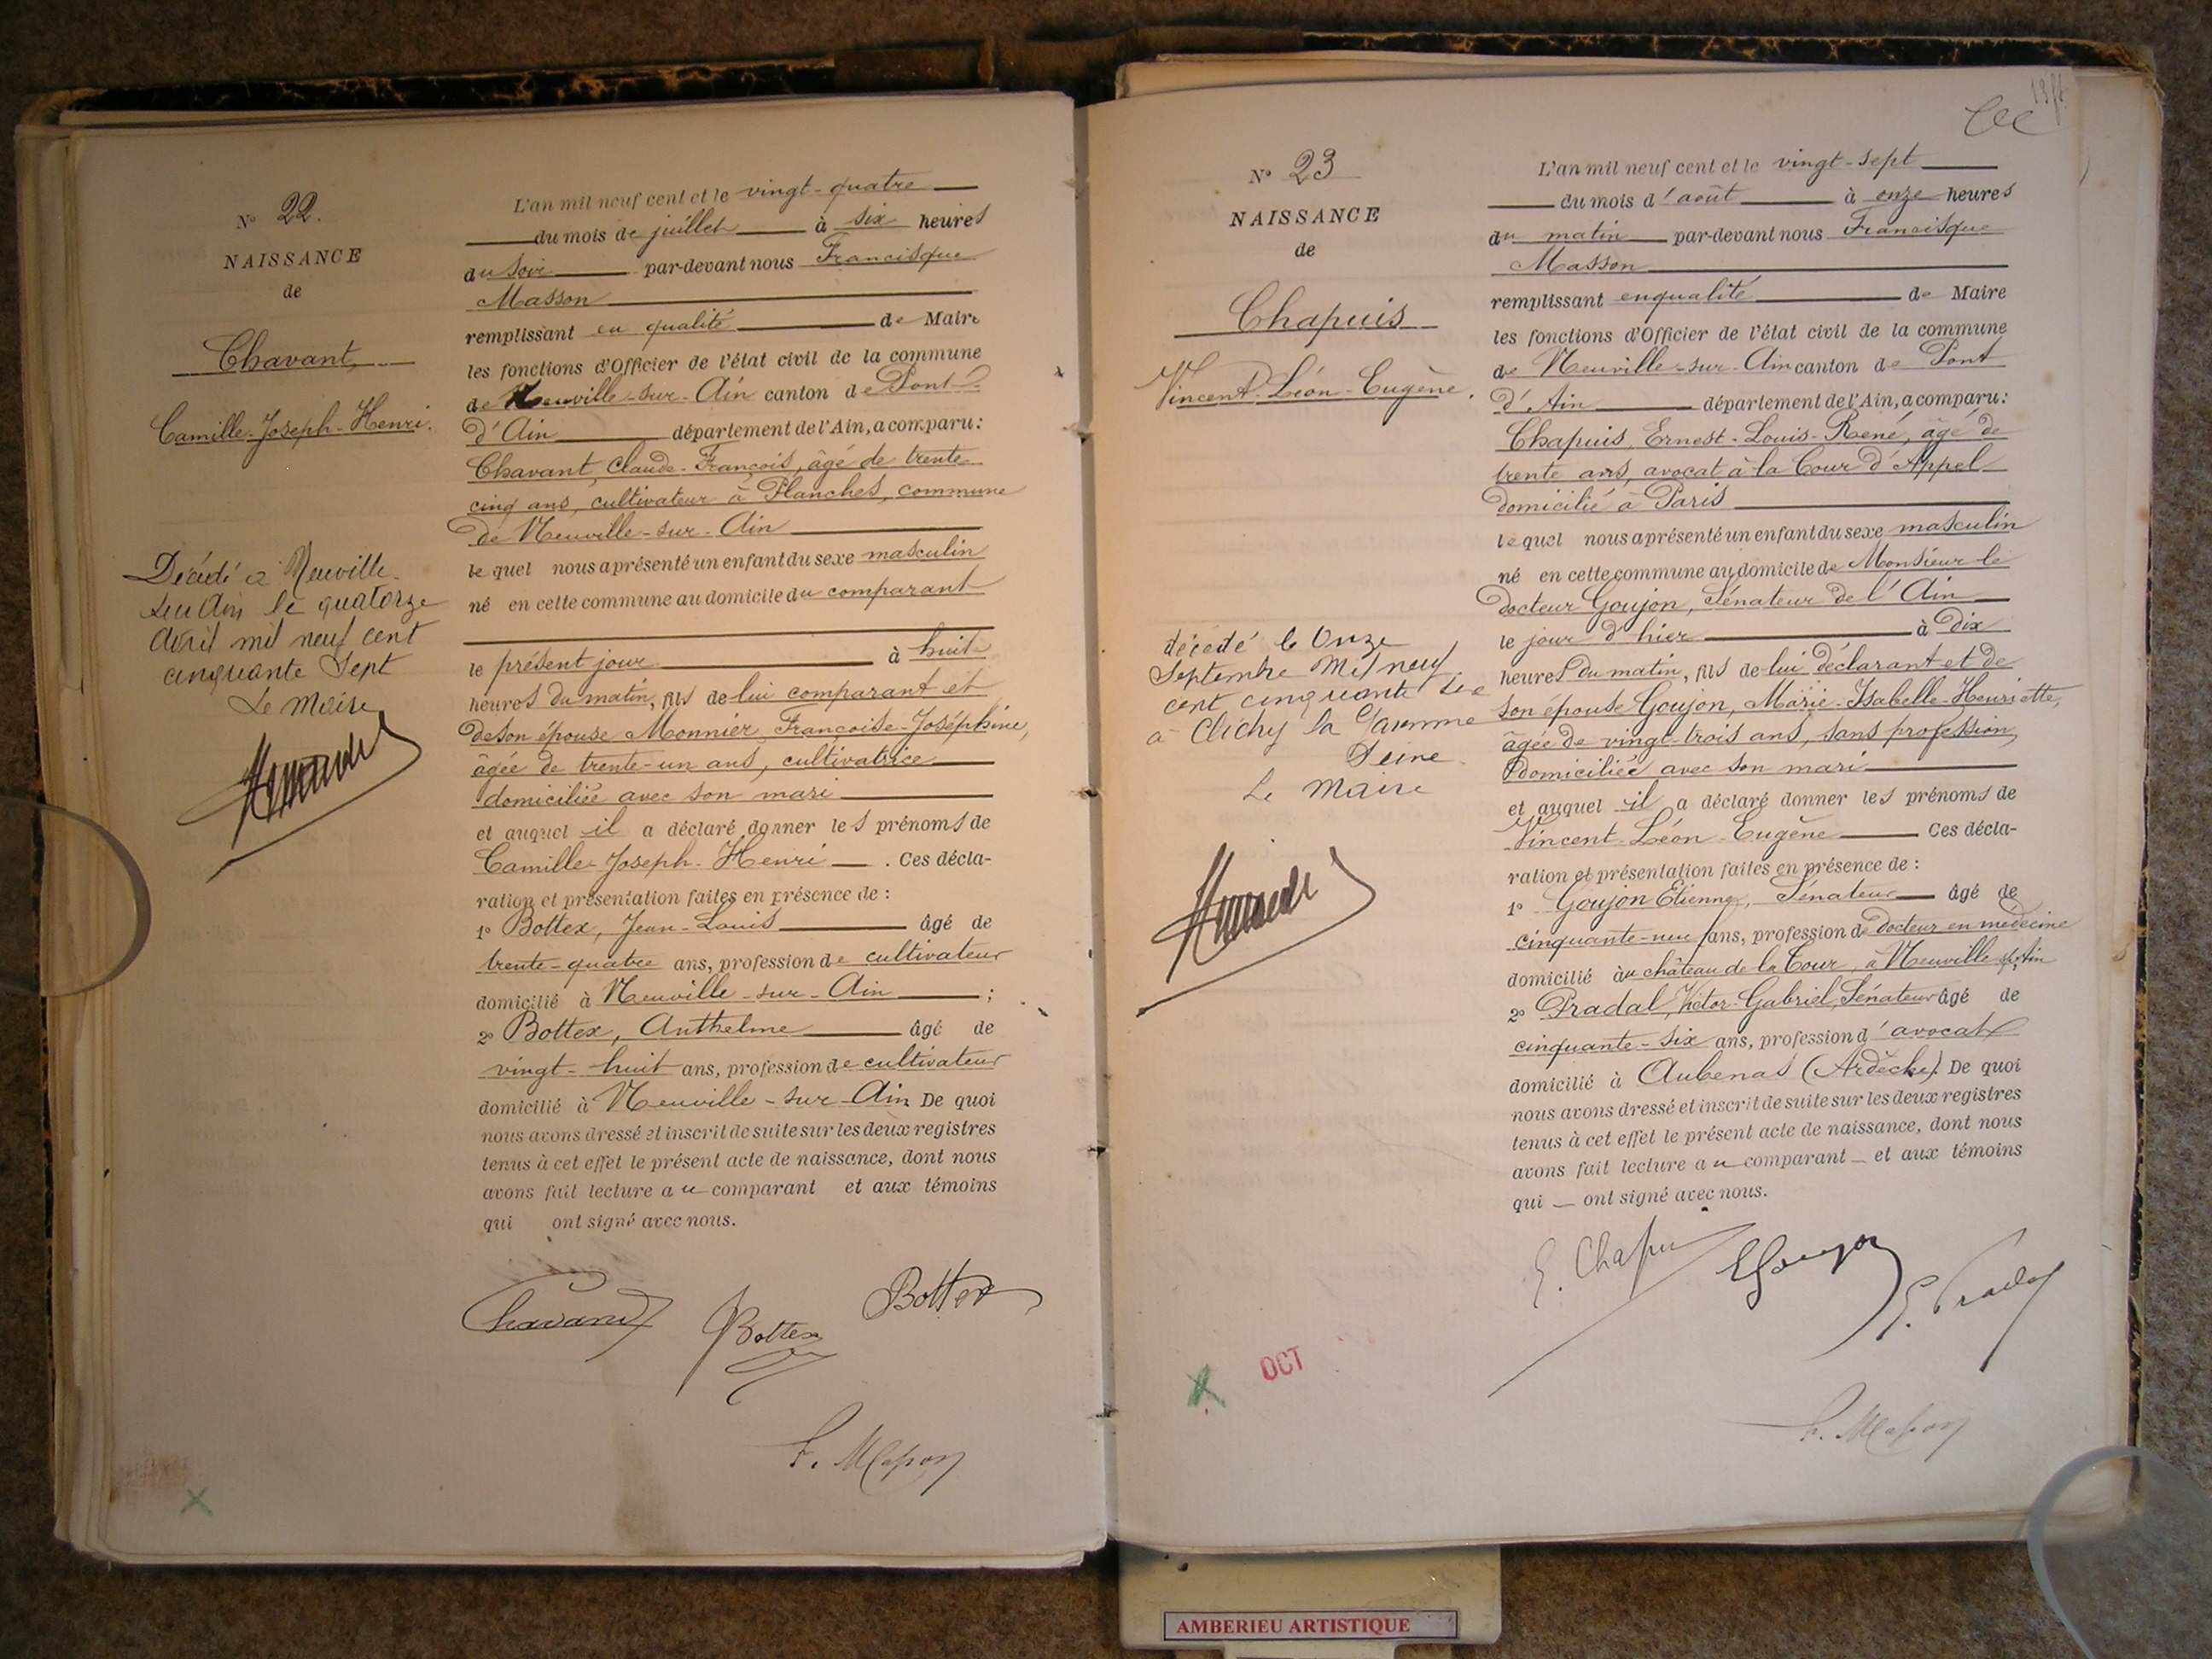 N° 22.
NAISSANCE
de
Chavant,
Camille-Joseph-Henri.
Décédé à Neuville-
sur Ain le quatorze
avril mil neuf cent
cinquante sept
Le Maire
L'an mil neuf cent et le vingt-quatre
du mois de juillet à six heures
du soir par-devant nous Francisque
Masson
remplissant en qualité de Maire
les fonctions d'Officier de l'état civil de la commune
de Neuville-sur-Ain canton de Pont-
d'Ain département de l'Ain, a comparu:
Chavant, Claude-François, âgé de trente-
cinq ans, cultivateur à Planches, commune
de Neuville-sur-Ain
lequel nous a présenté un enfant du sexe masculin
né en cette commune au domicile du comparant
le présent jour à huit
heures du matin, fils de lui comparant et
de son épouse Monnier, Françoise-Joséphine,
âgée de trente-un ans, cultivatrice
domiciliée avec son mari
et auquel il a déclaré donner les prénoms de
Camille-Joseph-Henri. Ces décla-
ration et présentation faites en présence de :
1° Bottex, Jean-Louis âgé de
trente-quatre ans, profession de cultivateur
domicilié à Neuville-sur-Ain ;
2° Bottex, Anthelme âgé de
vingt-huit ans, profession de cultivateur
domicilié à Neuville-sur-Ain De quoi
nous avons dressé et inscrit de suite sur les deux registres
tenus à cet effet le présent acte de naissance, dont nous
avons fait lecture au comparant et aux témoins
qui ont signé avec nous.
Chavant Bottex Bottex
F. Masson
N° 23
NAISSANCE
de
Chapuis
Vincent-Léon-Eugène.
décédé le Onze
Septembre Mil neuf
cent cinquante six
à Clichy la Garenne
Seine
Le Maire
OCT
L'an mil neuf cent et le vingt-sept
du mois d'août à onze heures
du matin par-devant nous Francisque
Masson
remplissant en qualité de Maire
les fonctions d'Officier de l'état civil de la commune
de Neuville-sur-Ain canton de Pont
d'Ain département de l'Ain, a comparu:
Chapuis, Ernest-Louis-René, âgé de
trente ans, avocat à la Cour d'Appel
domicilié à Paris
lequel nous a présenté un enfant du sexe masculin
né en cette commune au domicile de Monsieur le
docteur Goujon, Sénateur de l'Ain
le jour d'hier à dix
heures du matin, fils de lui déclarant et de
son épouse Goujon, Marie-Isabelle-Henriette,
âgée de vingt-trois ans, sans profession,
domiciliée avec son mari
et auquel il a déclaré donner les prénoms de
Vincent-Léon-Eugène Ces décla-
ration et présentation faites en présence de :
1° Goujon Etienne, Sénateur âgé de
cinquante-neuf ans, profession de docteur en médecine
domicilié au château de la Tour, à Neuville s/ Ain
2° Pradal, Victor-Gabriel, Sénateur âgé de
cinquante-six ans, profession d'avocat
domicilié à Aubenas (Ardèche). De quoi
nous avons dressé et inscrit de suite sur les deux registres
tenus à cet effet le présent acte de naissance, dont nous
avons fait lecture au comparant et aux témoins
qui ont signé avec nous.
E. Chapuis E Goujon G. Pradal
F. Masson
AMBERIEU ARTISTIQUE